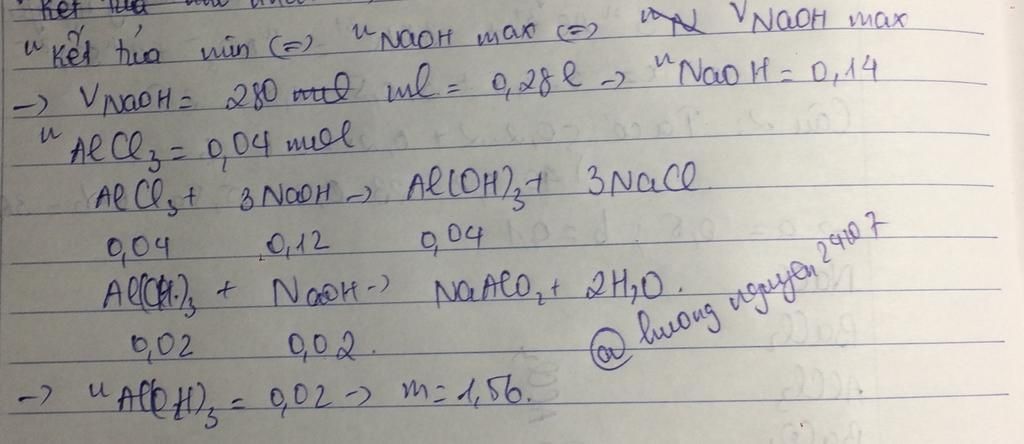 n kết tủa min <=> n NaOH max <=> V NaOH max
-> V NaOH = 280 ml = 0,28l -> n NaOH = 0,14
n AlCl3 = 0,04 mol
AlCl3 + 3NaOH -> Al(OH)3 + 3NaCl
0,04 0,12 0,04
Al(OH)3 + NaOH -> NaAlO2 + 2H2O.
0,02 0,02.
@ luong nguyen 2407
-> n Al(OH)3 = 0,02 -> m = 1,56.